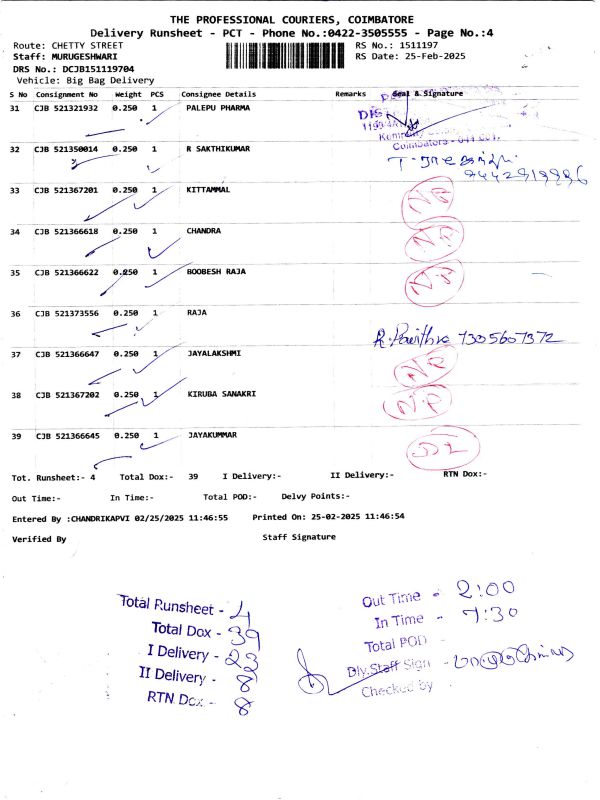 THE PROFESSIONAL COURIERS, COIMBATORE
Delivery Runsheet - PCT - Phone No.:0422-3505555 - Page No.:4
Route: CHETTY STREET RS No.: 1511197
Staff: MURUGESHWARI RS Date: 25-Feb-2025
DRS No.: DCJB151119704
Vehicle: Big Bag Delivery
S No Consignment No Weight PCS Consignee Details Remarks Seal & Signature
31 CJB 521321932 0.250 1 PALEPU PHARMA
Coimbatore - 641 001.
32 CJB 521350014 0.250 1 R SAKTHIKUMAR
33 CJB 521367201 0.250 1 KITTAMMAL NR
34 CJB 521366618 0.250 1 CHANDRA NR
35 CJB 521366622 0.250 1 BOOBESH RAJA N.R
36 CJB 521373556 0.250 1 RAJA
R. Pavithra 7305607372
37 CJB 521366647 0.250 1 JAYALAKSHMI NR
38 CJB 521367202 0.250 1 KIRUBA SANAKRI N.P
39 CJB 521366645 0.250 1 JAYAKUMMAR
Tot. Runsheet:- 4 Total Dox:- 39 I Delivery:- II Delivery:- RTN Dox:-
Out Time:- In Time:- Total POD:- Delvy Points:-
Entered By :CHANDRIKAPVI 02/25/2025 11:46:55 Printed On: 25-02-2025 11:46:54
Verified By Staff Signature
Total Runsheet - 4
Total Dox - 39
I Delivery - 23
II Delivery - 8
RTN Dox - 8
Out Time - 2:00
In Time - 7:30
Total POD -
Dly.Staff Sign -
Checked by